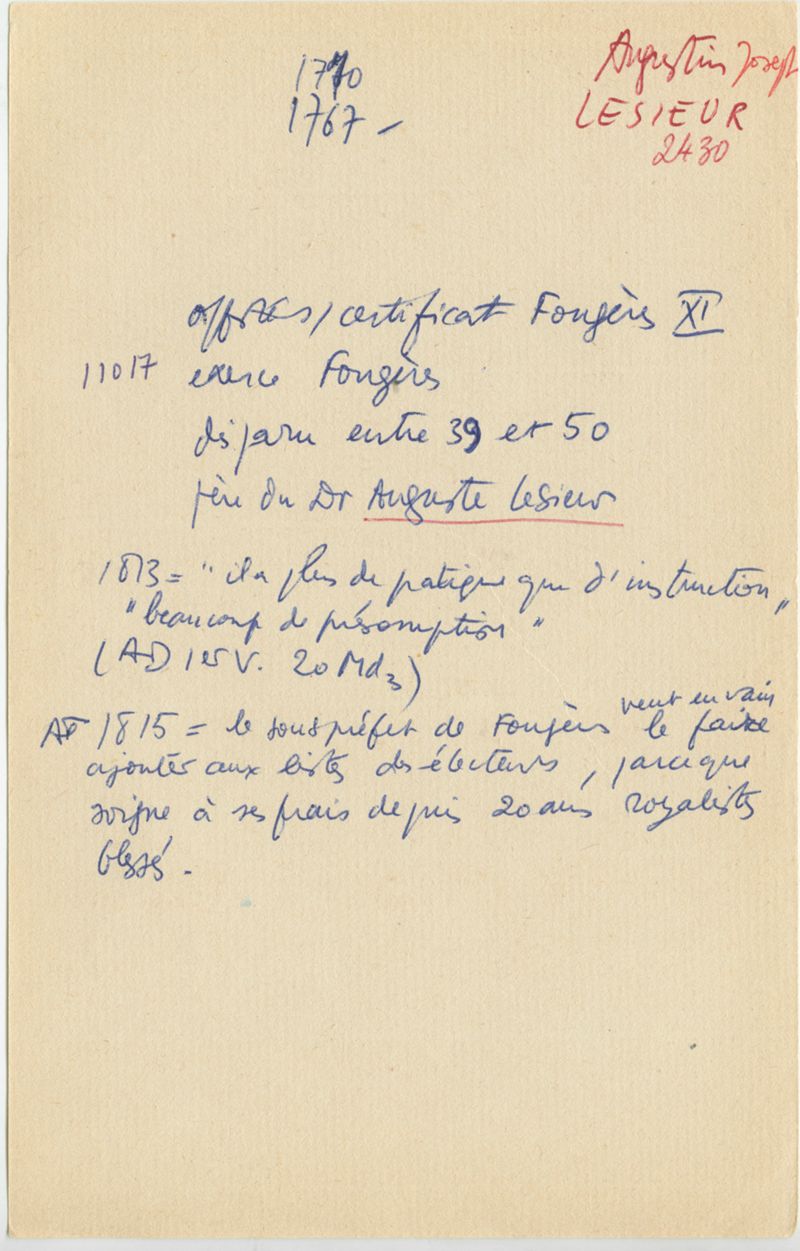 1770
1767 -
Augustin Joseph
LESIEUR
2430
certificat Fougères XI
11017 exerce Fougères
disparu entre 39 et 50
père du Dr Auguste Lesieur
1813 = "il a plus de pratique que d'instruction,"
"beaucoup de présomption"
(AD I et V. 20 Md3)
1815 = le sous préfet de Fougères veut en vain le faire
ajouter aux listes des électeurs, parce que
soigne à ses frais depuis 20 ans royalistes
blessés.